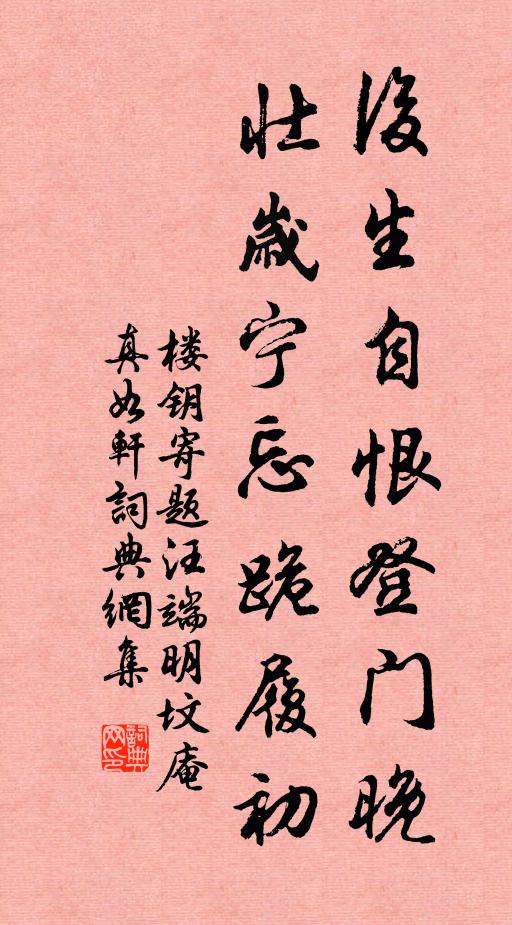 後生自恨登门晚
壮歳宁忘跪履初
楼钥寄题汪端明坟庵
真如軒詞典網集
詞典
网印